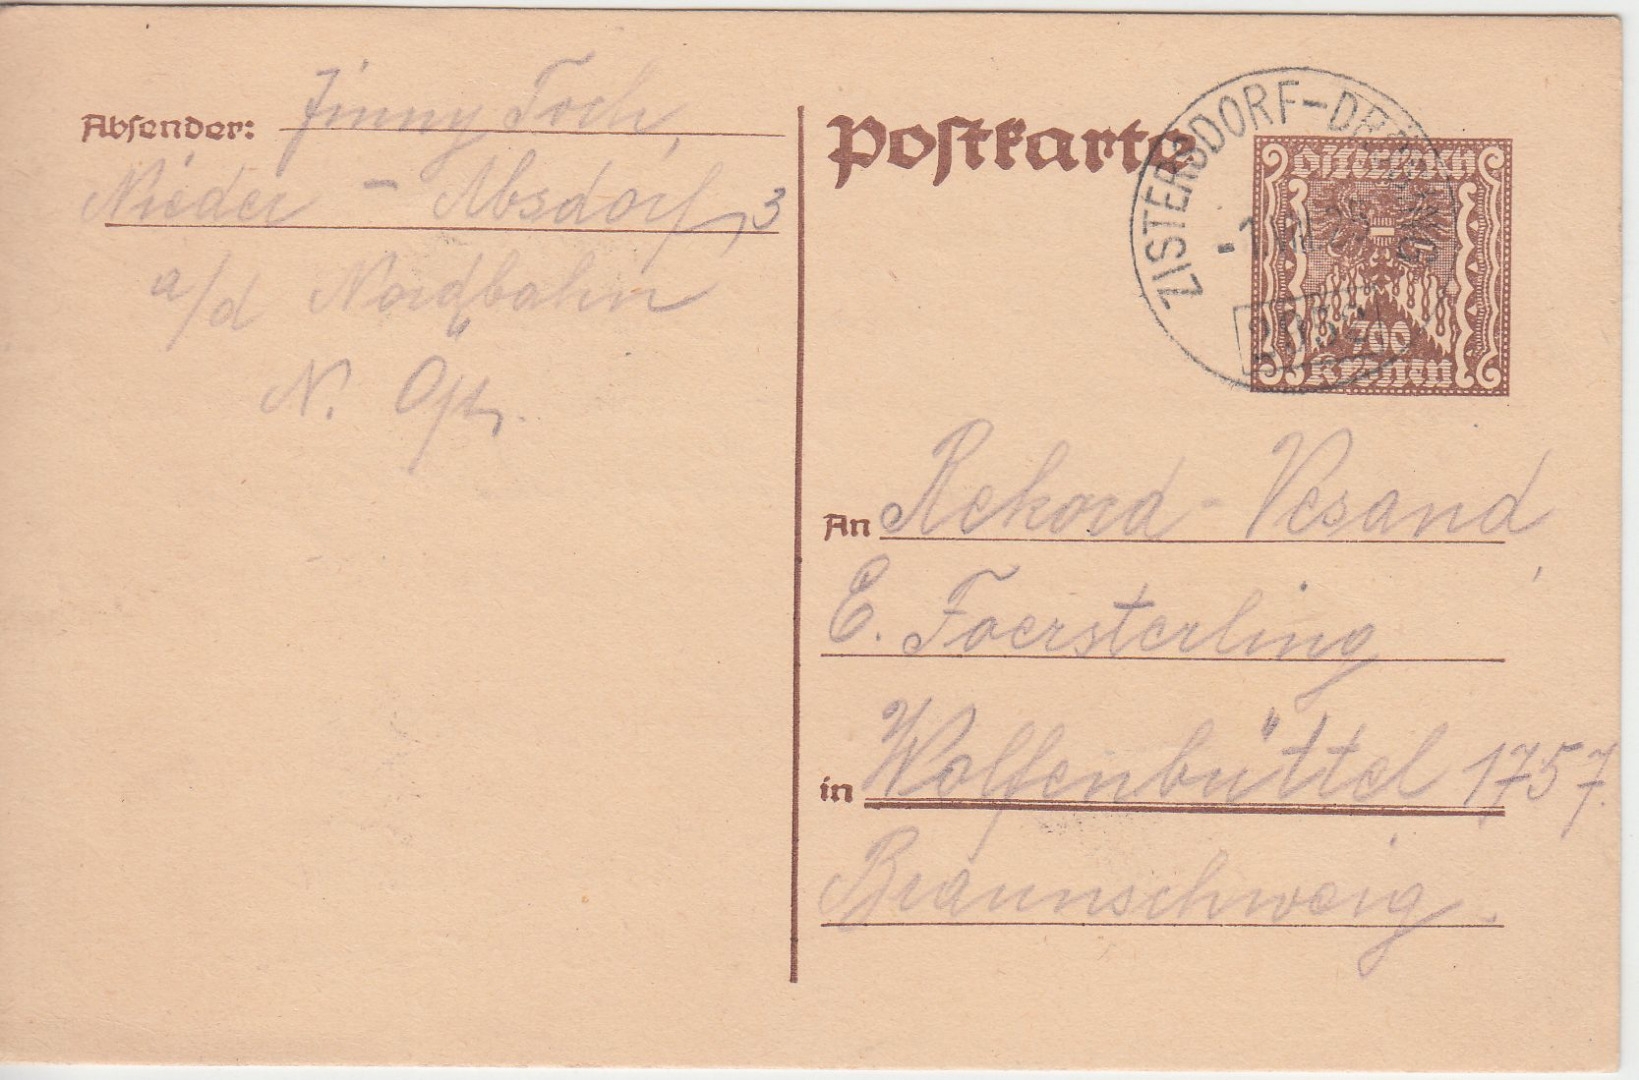 Absender: Jinny Toch,
Nieder - Absdorf, 3
a/d Nordbahn
N. Öst.
Postkarte
ZISTERSDORF-DR
-1.VII.2
Österreich
700
Kronen
An Rekord-Vesand,
E. Foersterling
in Wolfenbüttel 1757.
Braunschweig.